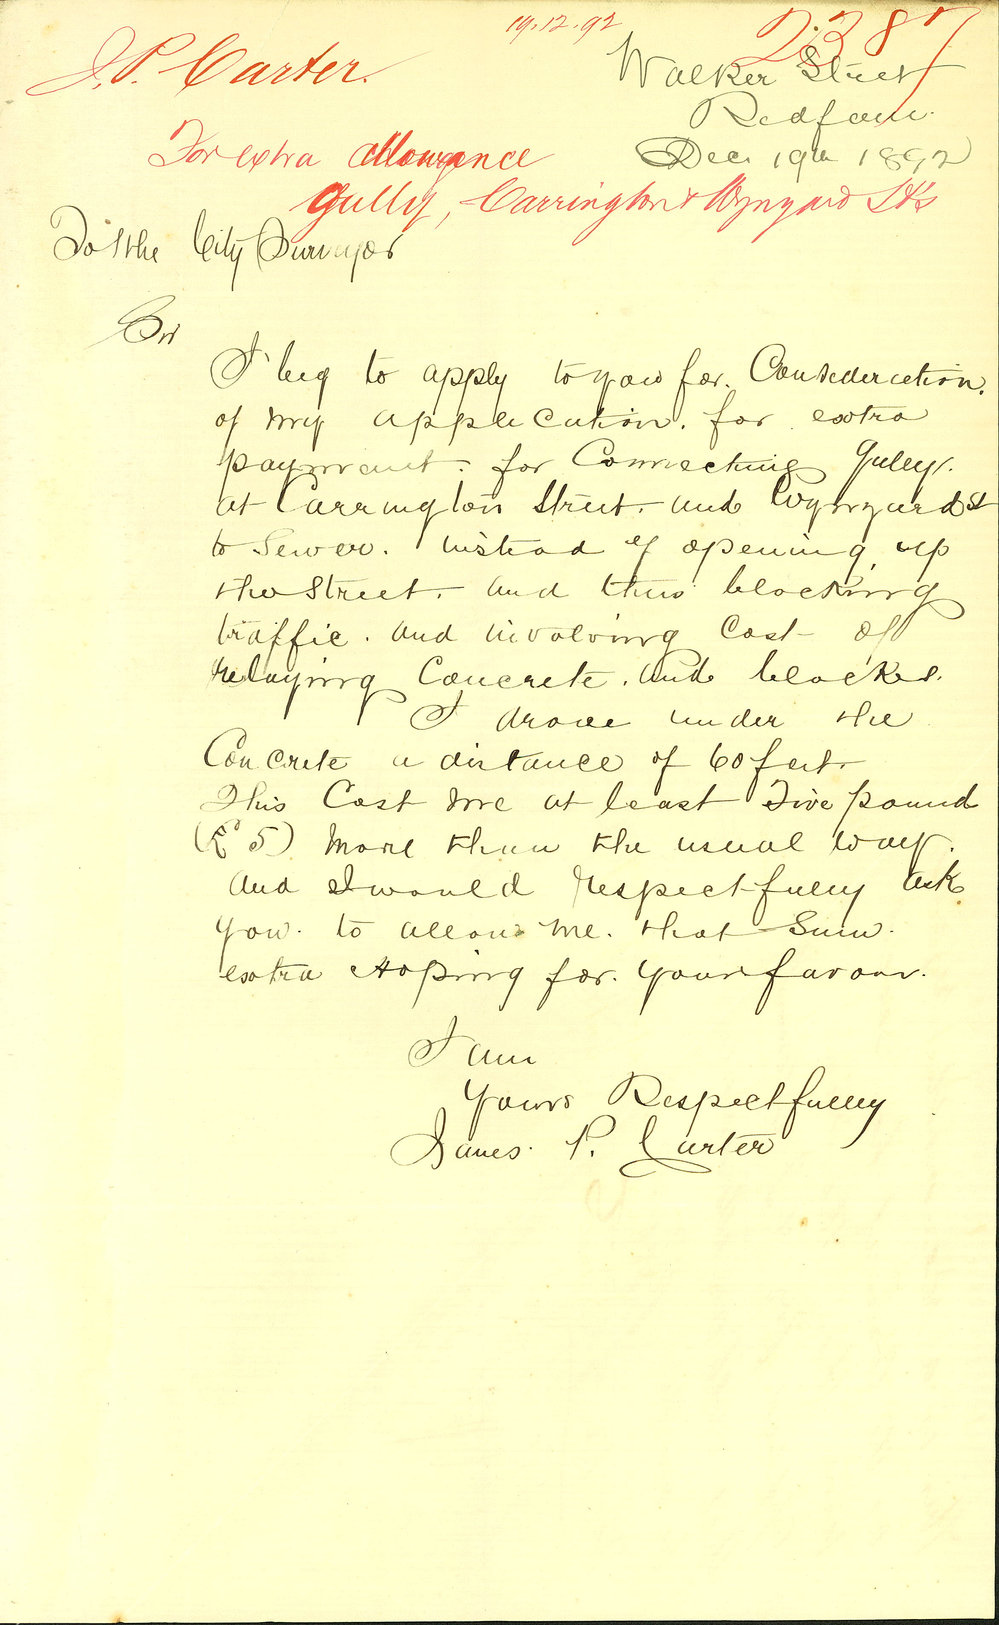 19.12.92
2387
J. P. Carter.
Walker Street
Redfern.
For extra allowance
Dec. 19th 1892
Gully, Carrington & Wynyard Sts
To the City Surveyor
Sir
I beg to apply to you for. Consideration.
of my application. for extra
payment. for Connecting Gulley.
at Carrington Street. and Wynyard St
to Sewer. instead of opening up
the Street. and thus blocking
traffic. and involving Cost of
relaying Concrete. and blocks.
I drove under the
Concrete a distance of 60 feet.
This Cost me at least Five pound
(£5) more than the usual way.
and I would respectfully ask
you. to allow me. that Sum.
extra Hoping for. your favour.
I am
Yours Respectfully
James. P. Carter